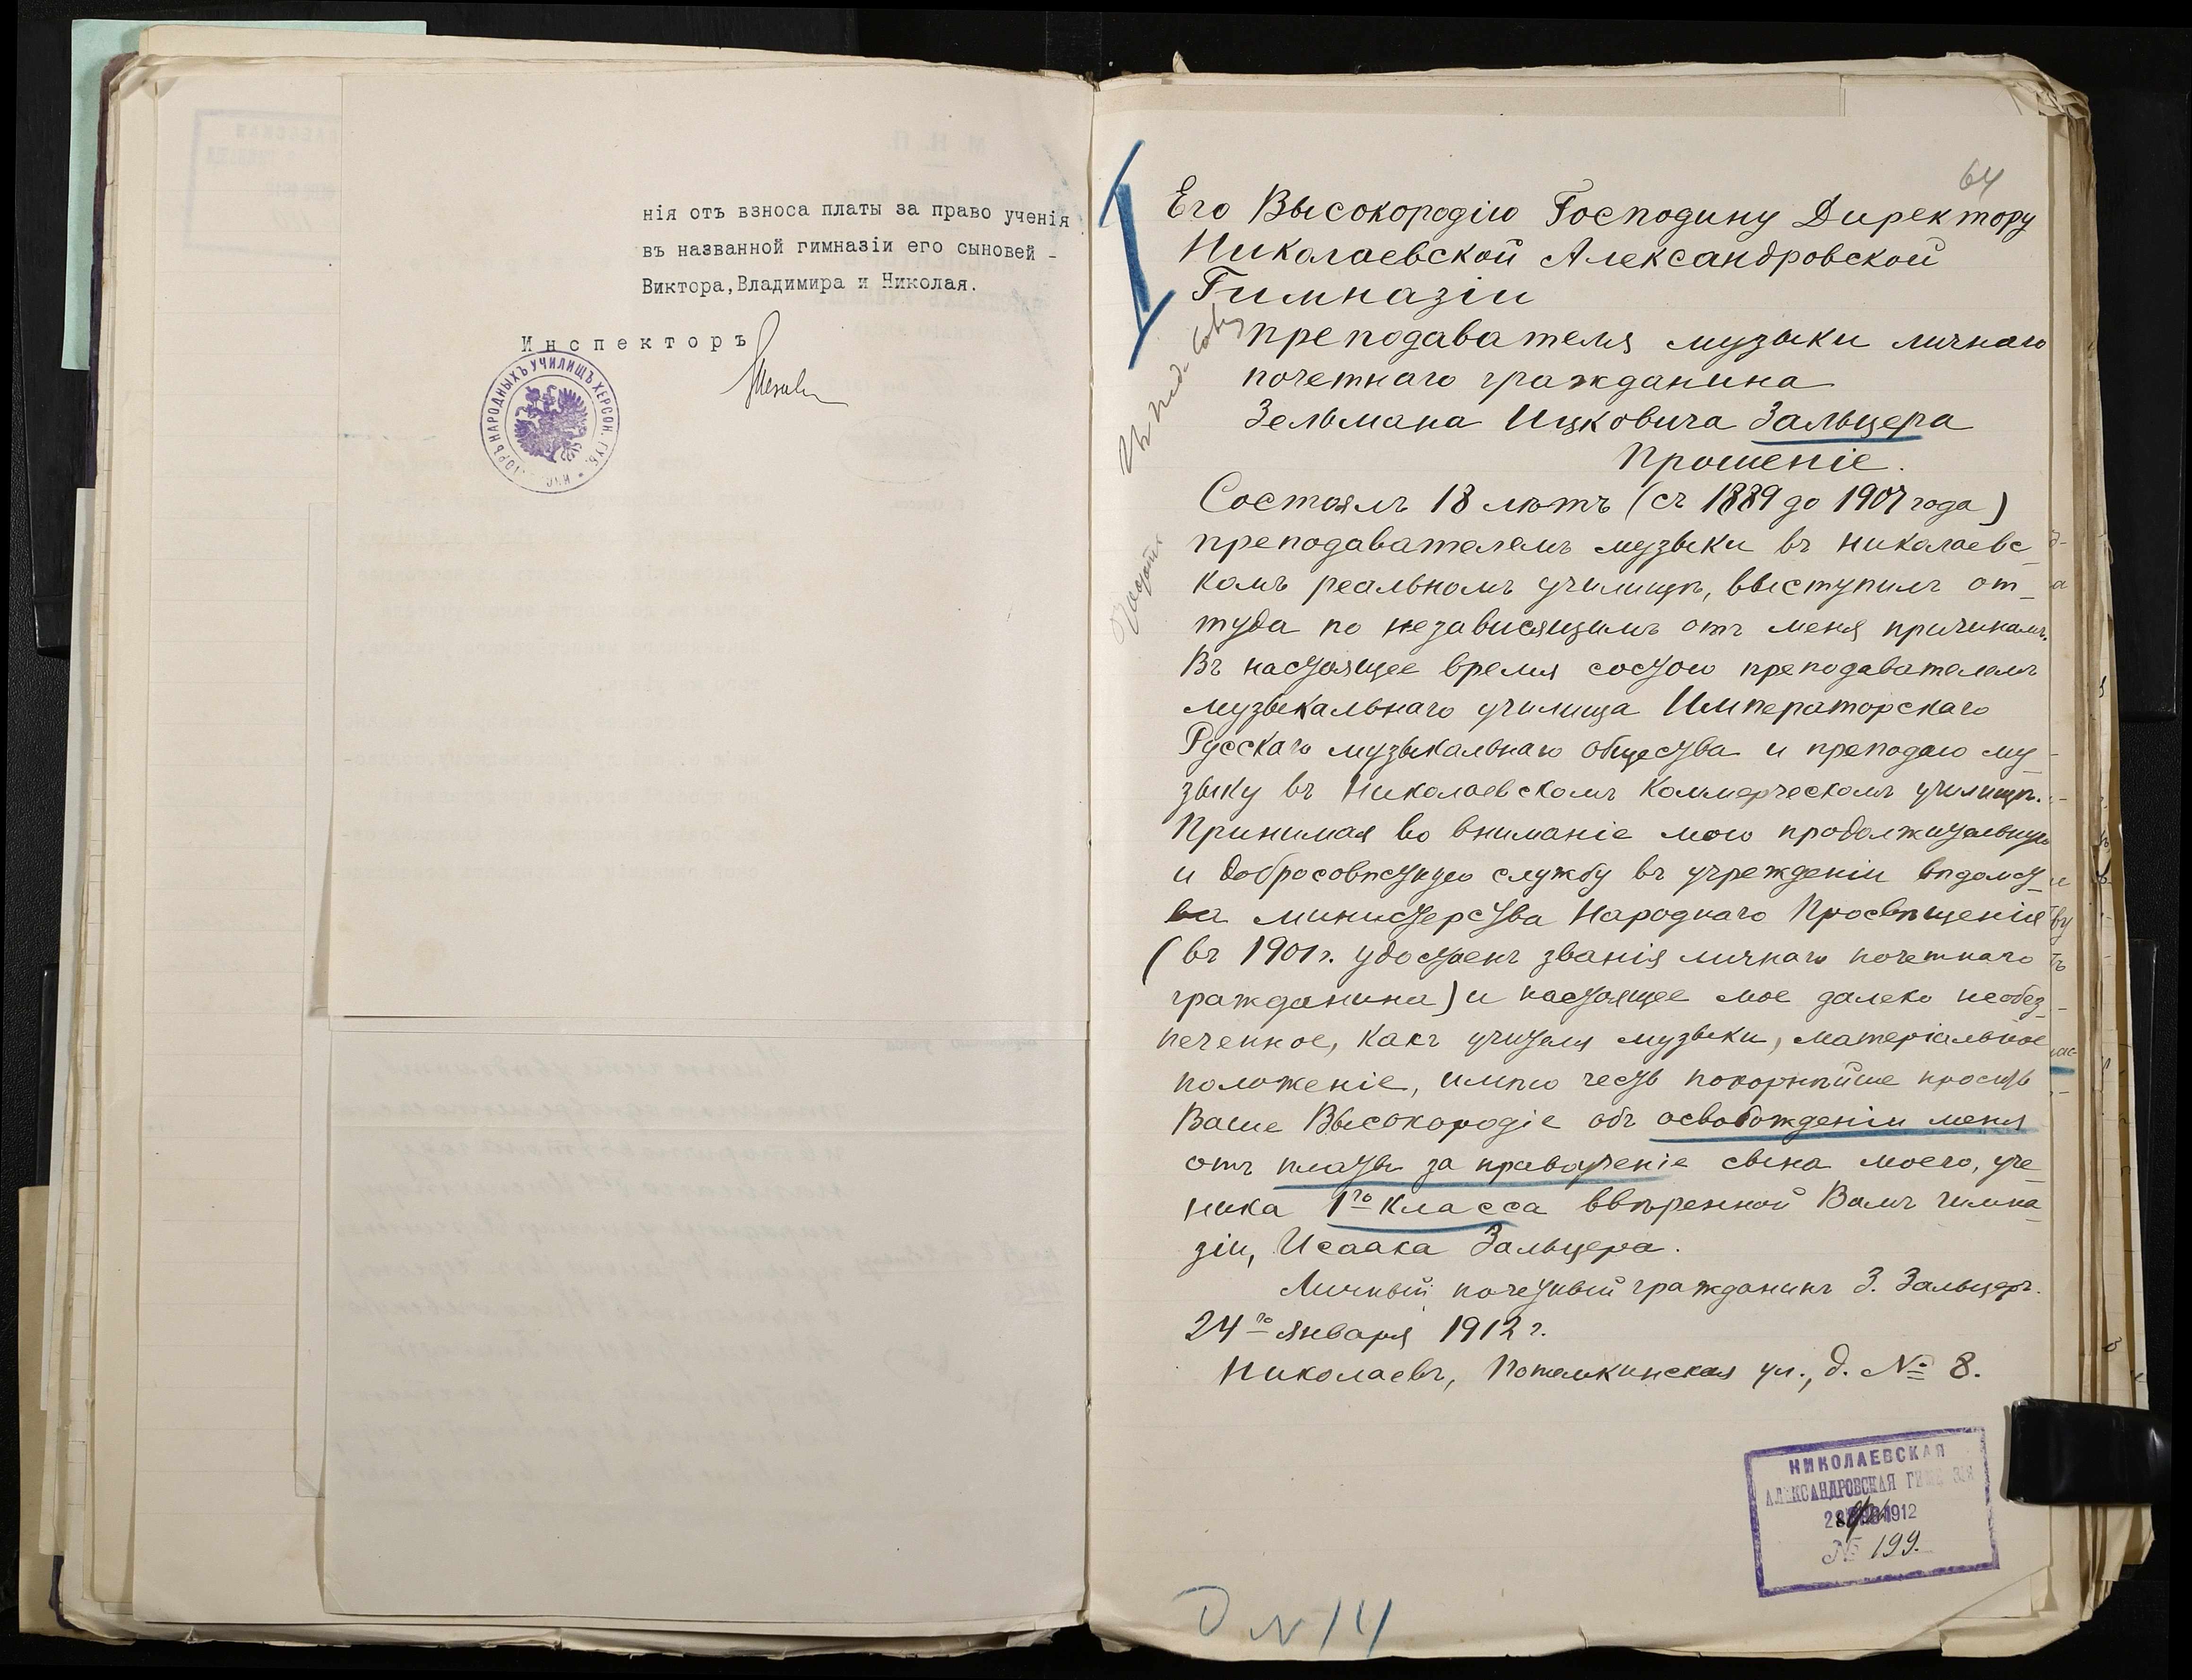 нія отъ взноса платы за право ученія
въ названной гимназіи его сыновей -
Виктора, Владимира и Николая.
Инспекторъ
НАРОДНЫХЪ УЧИЛИЩЪ ХЕРСОН. ГУБ.
64
Его Высокородію Господину Директору
Николаевской Александровской
Гимназіи
преподавателя музыки личнаго
почетнаго гражданина
Зельмана Ицковича Зальцера
Прошеніе.
Состоялъ 18 лѣтъ (съ 1889 до 1907 года)
преподавателемъ музыки въ Николаевс
комъ реальномъ училищѣ, выступилъ от_
туда по независящимъ отъ меня причинамъ.
Въ настоящее время состою преподавателемъ
музыкальнаго училища Императорскаго
Русскаго музыкальнаго общества и преподаю му_
зыку въ Николаевскомъ Коммерческомъ училищѣ.
Принимая во вниманіе мою продолжительную
и добросовѣстную службу въ учрежденіи вѣдомст_
ва министерства Народнаго Просвѣщенія
(въ 1901 г. удостоенъ званія личнаго почетнаго
гражданина) и настоящее мое далеко необез_
печенное, какъ учителя музыки, матеріальное
положеніе, имѣю честь покорнѣйше просить
Ваше Высокородіе объ освобожденіи меня
отъ платы за правоученіе сына моего, уче_
ника 1го класса ввѣренной Вамъ гимна_
зіи, Исаака Зальцера.
Личный почетный гражданинъ З. Зальцеръ.
24го января 1912 г.
Николаевъ, Потемкинская ул., д. № 8.
НИКОЛАЕВСКАЯ
АЛЕКСАНДРОВСКАЯ ГИМНАЗІЯ
1912
№ 199.
D N 14